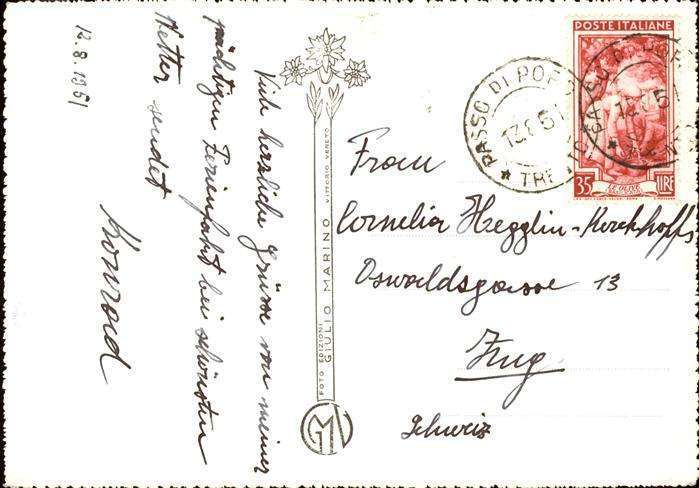 12.8.1951
Viele herzliche Grüsse von meiner
prächtigen Ferienfahrt bei schönstem
Wetter sendet
Konrad
FOTO EDIZIONI
GIULIO MARINO VITTORIO VENETO
GM
POSTE ITALIANE
35 LIRE
PASSO DI POR
13.8.51
TRE
Frau
Cornelia Hegglin-Kerckhoffs
Oswaldsgasse 13
Zug
Schweiz